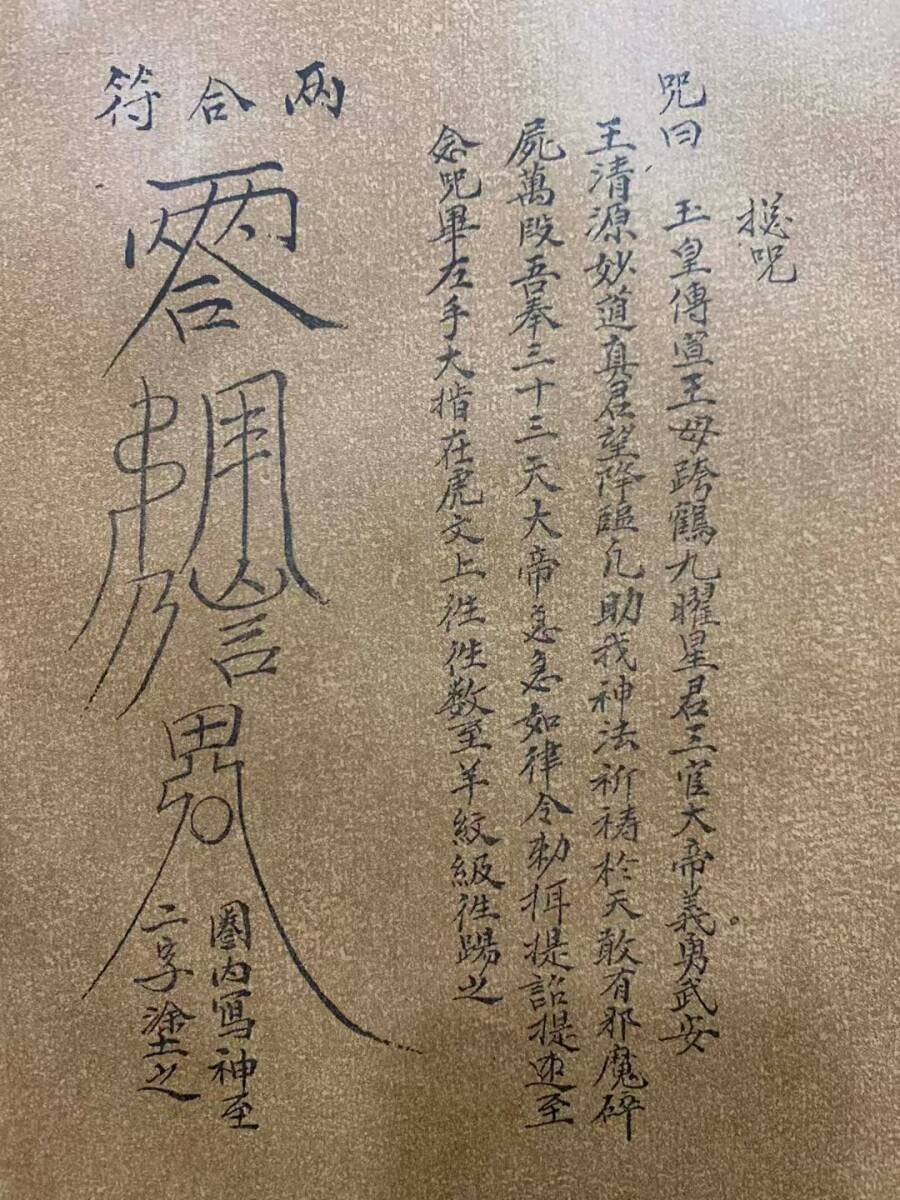 摠咒
咒曰　玉皇傳宣王母跨鶴九曜星君三官大帝義勇武安
王清源妙道真君望降臨凡助我神法祈禱於天敢有邪魔碎
屍萬段吾奉三十三天大帝急急如律令勅
提詔提速至
念咒畢左手大指在虎文上徃徃数至羊紋級徃踼之
兩合符
圏内寫神至
二字塗之